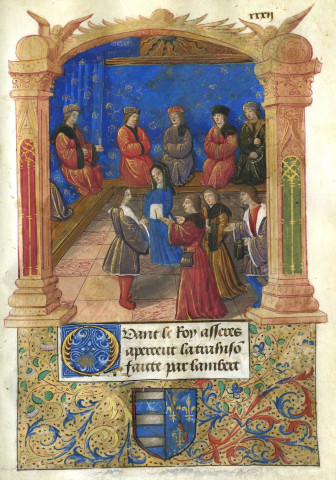 xxxij
Quant le Roy asseres
aperceut la trahisō
faitte par lambert